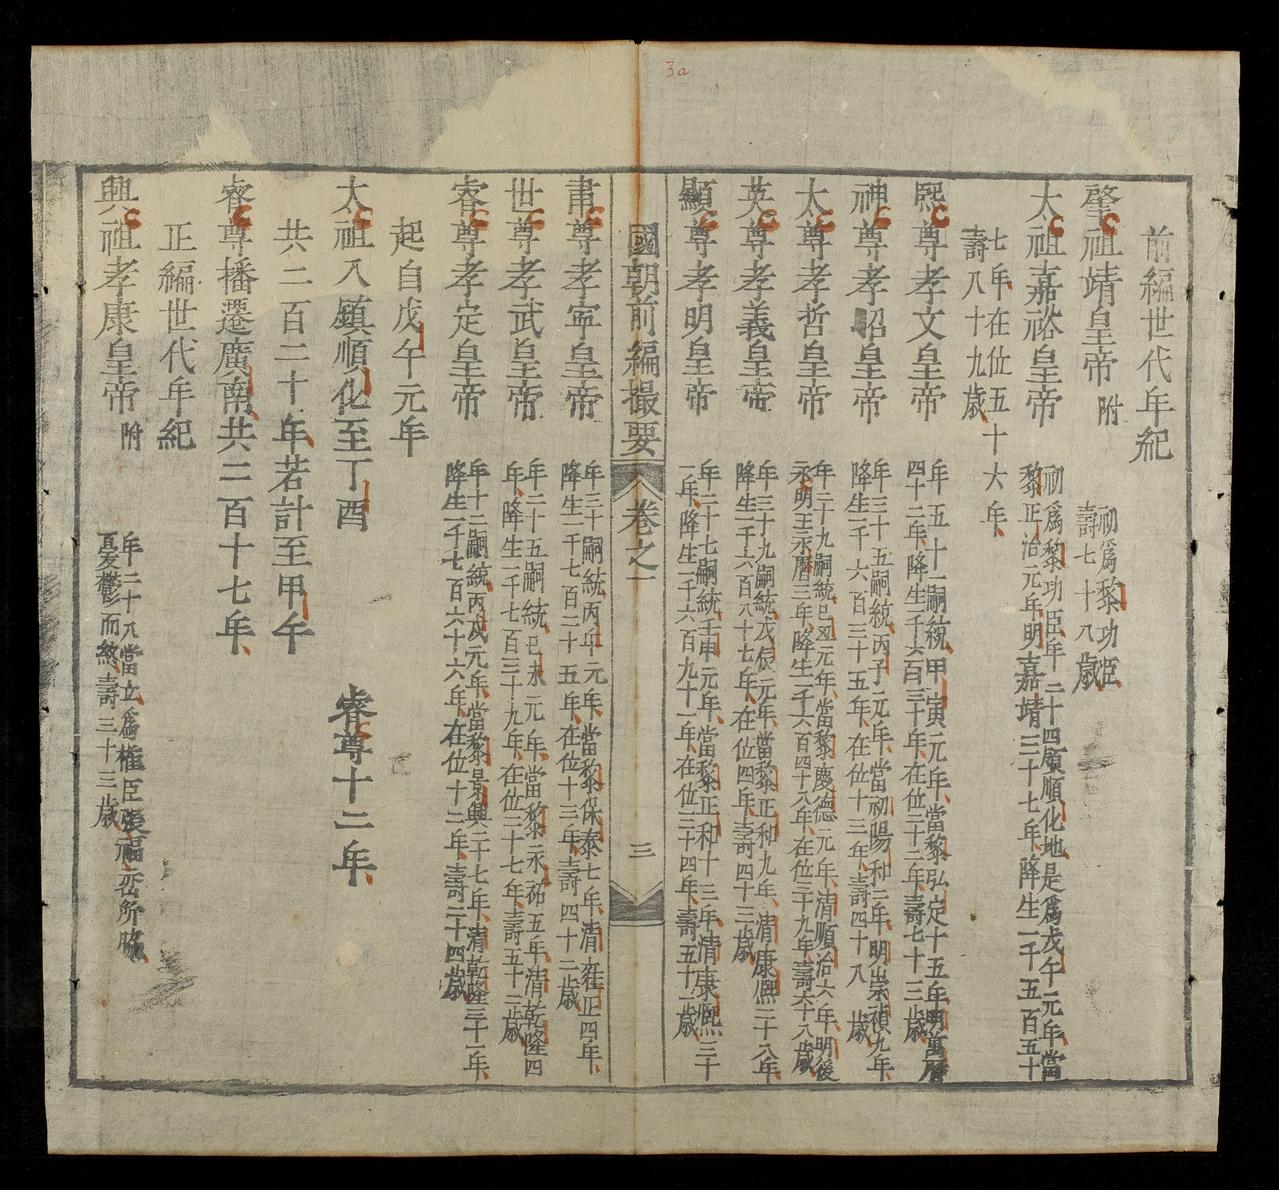 3a
前編世代年紀
肇祖靖皇帝附
初爲黎功臣
壽七十八歲
太祖嘉裕皇帝
初爲黎功臣年二十四願順化地是爲戊午元年當
黎正治元年明嘉靖三十七年降生一千五百五十
七年在位五十六年
壽八十九歲
熙尊孝文皇帝
年五十一嗣統甲寅元年當黎弘定十五年明萬曆
四十二年降生一千六百三十年在位二十二年壽七十三歲
神尊孝昭皇帝
年三十五嗣統丙子元年當初陽和二年明崇禎九年
降生一千六百三十五年在位十三年壽四十八歲
太尊孝哲皇帝
年二十九嗣統己丑元年當黎慶德元年清順治六年明後
永明王永曆三年降生一千六百四十八年在位三十九年壽六十八歲
英尊孝義皇帝
年三十九嗣統戊辰元年當黎正和九年清康熙二十八年
降生一千六百八十七年在位四年壽四十三歲
顯尊孝明皇帝
年二十七嗣統壬申元年當黎正和十三年清康熙三十
一年降生一千六百九十一年在位三十四年壽五十一歲
國朝前編撮要 卷之一 三
肅尊孝寧皇帝
年三十嗣統丙午元年當黎保泰七年清雍正四年
降生一千七百二十五年在位十三年壽四十二歲
世尊孝武皇帝
年二十五嗣統己未元年當黎永祐五年清乾隆四
年降生一千七百三十九年在位二十七年壽五十二歲
睿尊孝定皇帝
年十二嗣統丙戌元年當黎景興二十七年清乾隆三十一年
降生一千七百六十六年在位十二年壽二十四歲
起自戊午元年
太祖入鎮順化至丁酉 睿尊十二年
共二百二十年若計至甲午
睿尊播遷廣南共二百十七年
正編世代年紀
興祖孝康皇帝附
年二十八當立爲權臣張福巒所脇
憂鬱而終壽三十三歲